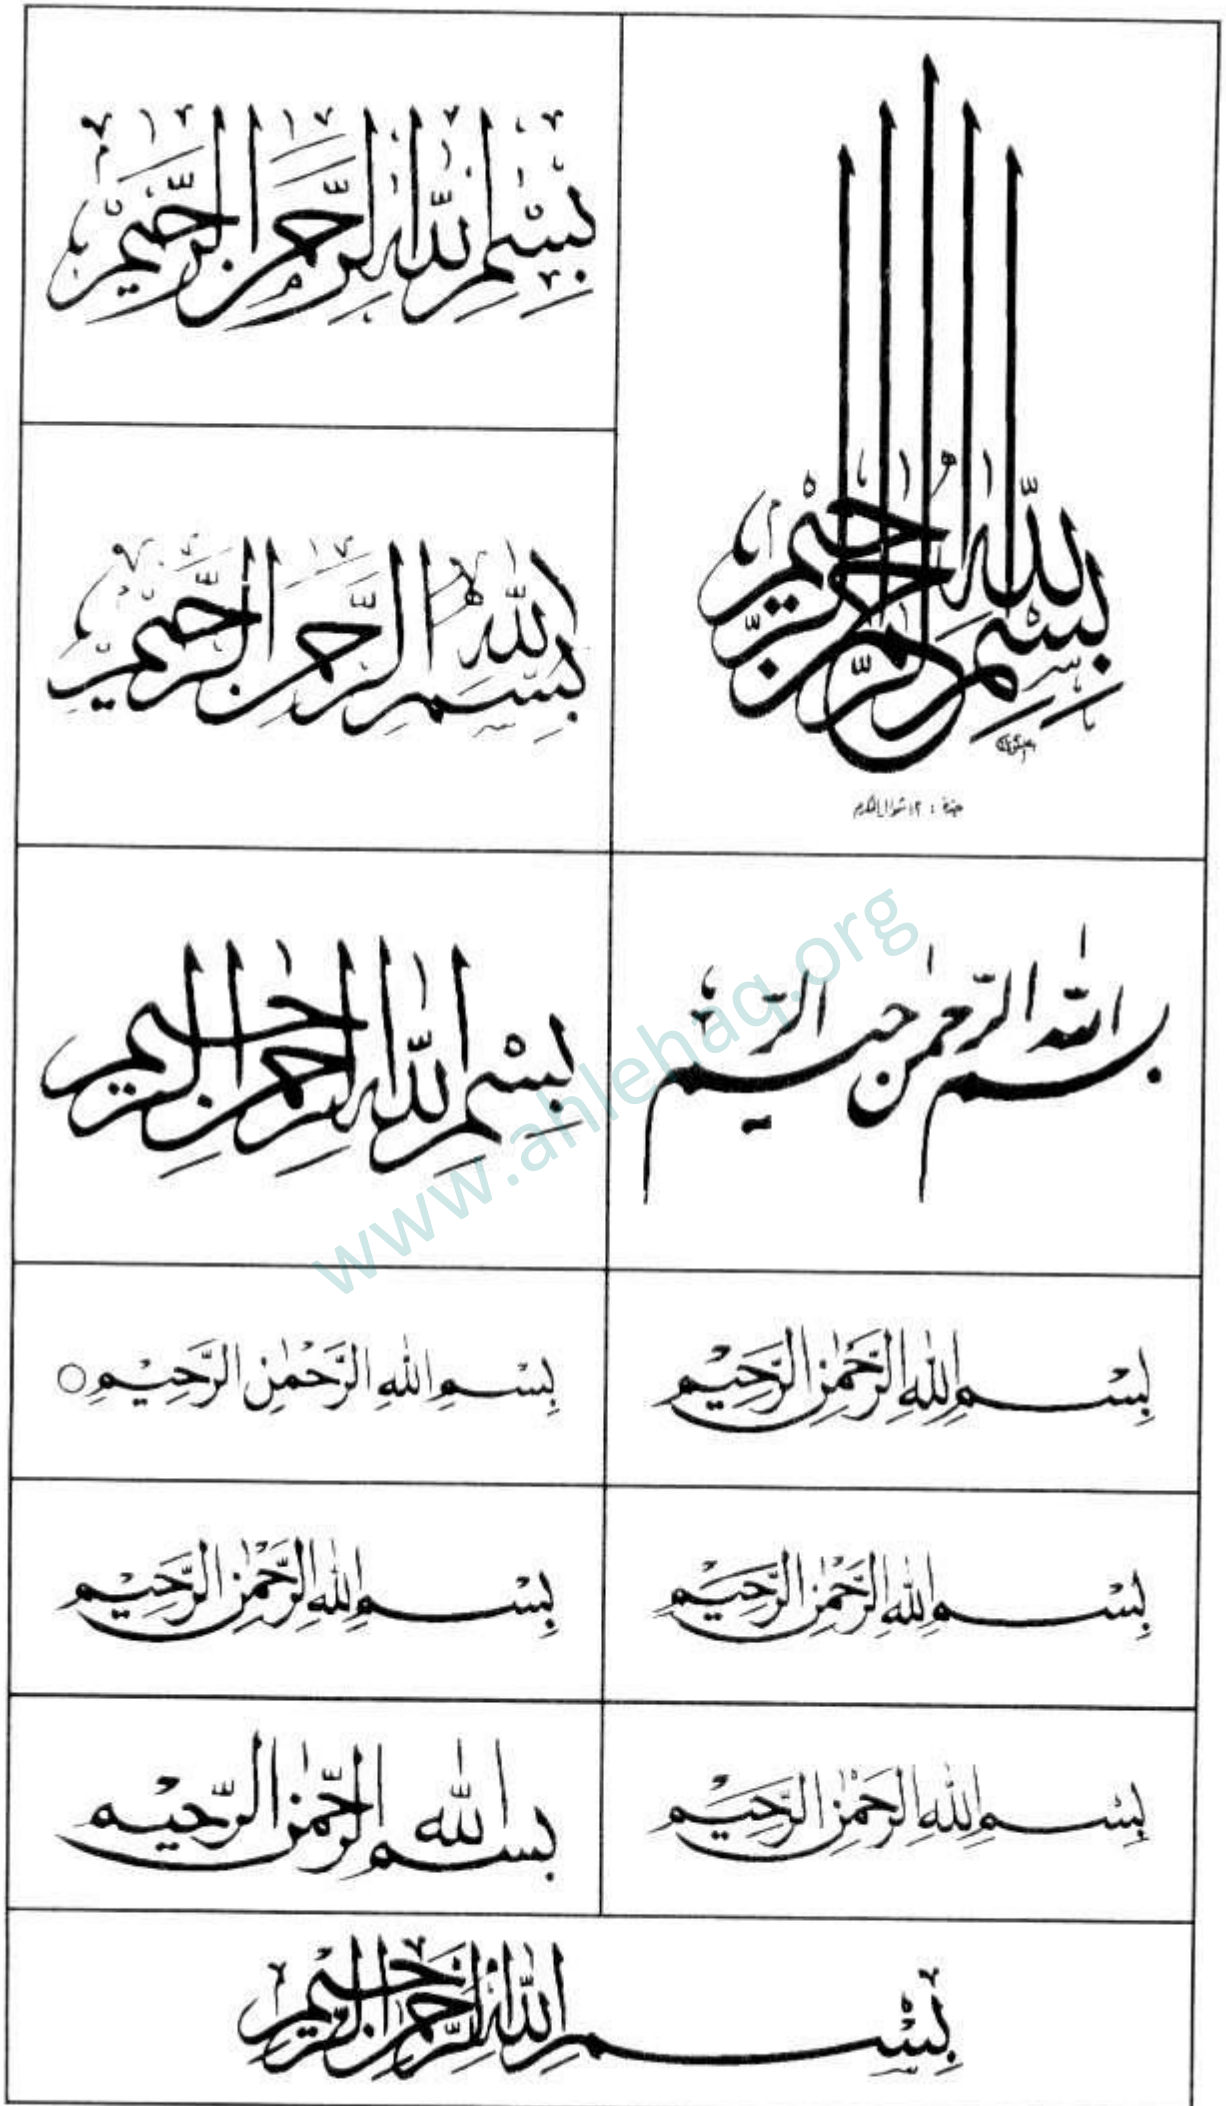 بِسْمِ اللهِ الرَّحْمٰنِ الرَّحِيْمِ
بِسْمِ اللهِ الرَّحْمٰنِ الرَّحِيْمِ
بِسْمِ اللهِ الرَّحْمٰنِ الرَّحِيْمِ
جدة : ١٢ شوال المكرم
بسم اللّٰه الرّحمٰن الرّحیم
بِسْمِ اللّٰهِ الرَّحْمٰنِ الرَّحِيمِ
www.ahlehaq.org
بِسْمِ اللهِ الرَّحْمٰنِ الرَّحِيْمِ
بِسْمِ اللهِ الرَّحْمٰنِ الرَّحِيْمِ ○
بِسْمِ اللهِ الرَّحْمٰنِ الرَّحِيْمِ
بِسْمِ اللهِ الرَّحْمٰنِ الرَّحِيْمِ
بِسْمِ اللهِ الرَّحْمٰنِ الرَّحِيْمِ
بسم اللّٰه الرّحمٰن الرّحيم
بِسْمِ اللهِ الرَّحْمٰنِ الرَّحِيْمِ